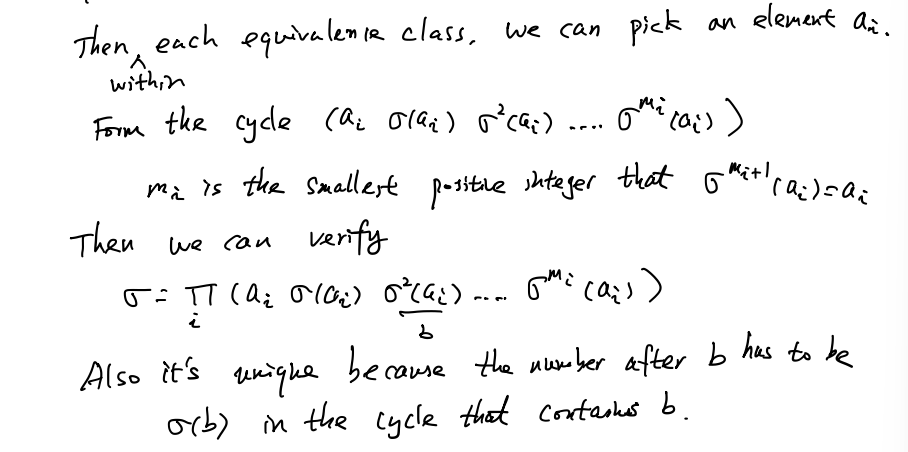 Then ^within each equivalence class, we can pick an element aᵢ.
Form the cycle (aᵢ σ(aᵢ) σ²(aᵢ) .... σ^{mᵢ}(aᵢ))
mᵢ is the smallest positive integer that σ^{mᵢ+1}(aᵢ)=aᵢ
Then we can verify
σ = ∏ᵢ (aᵢ σ(aᵢ) σ²(aᵢ) .... σ^{mᵢ}(aᵢ))
b
Also it's unique because the number after b has to be
σ(b) in the cycle that contains b.